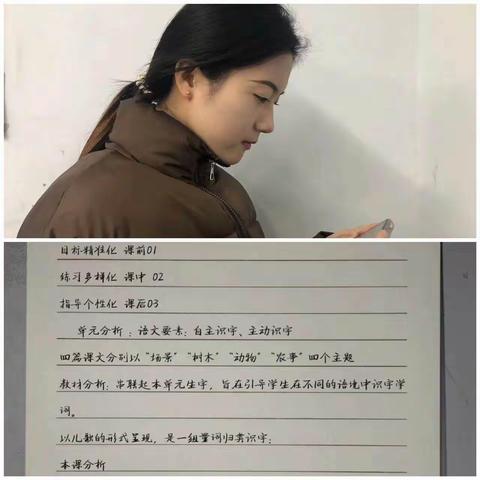 目标精准化 课前01
练习多样化 课中 02
指导个性化 课后03
单元分析：语文要素：自主识字、主动识字
四篇课文分别以“场景”“树木”“动物”“农事”四个主题
教材分析：串联起本单元生字，旨在引导学生在不同的语境中识字学
词。
以儿歌的形式呈现，是一组量词归类识字；
本课分析